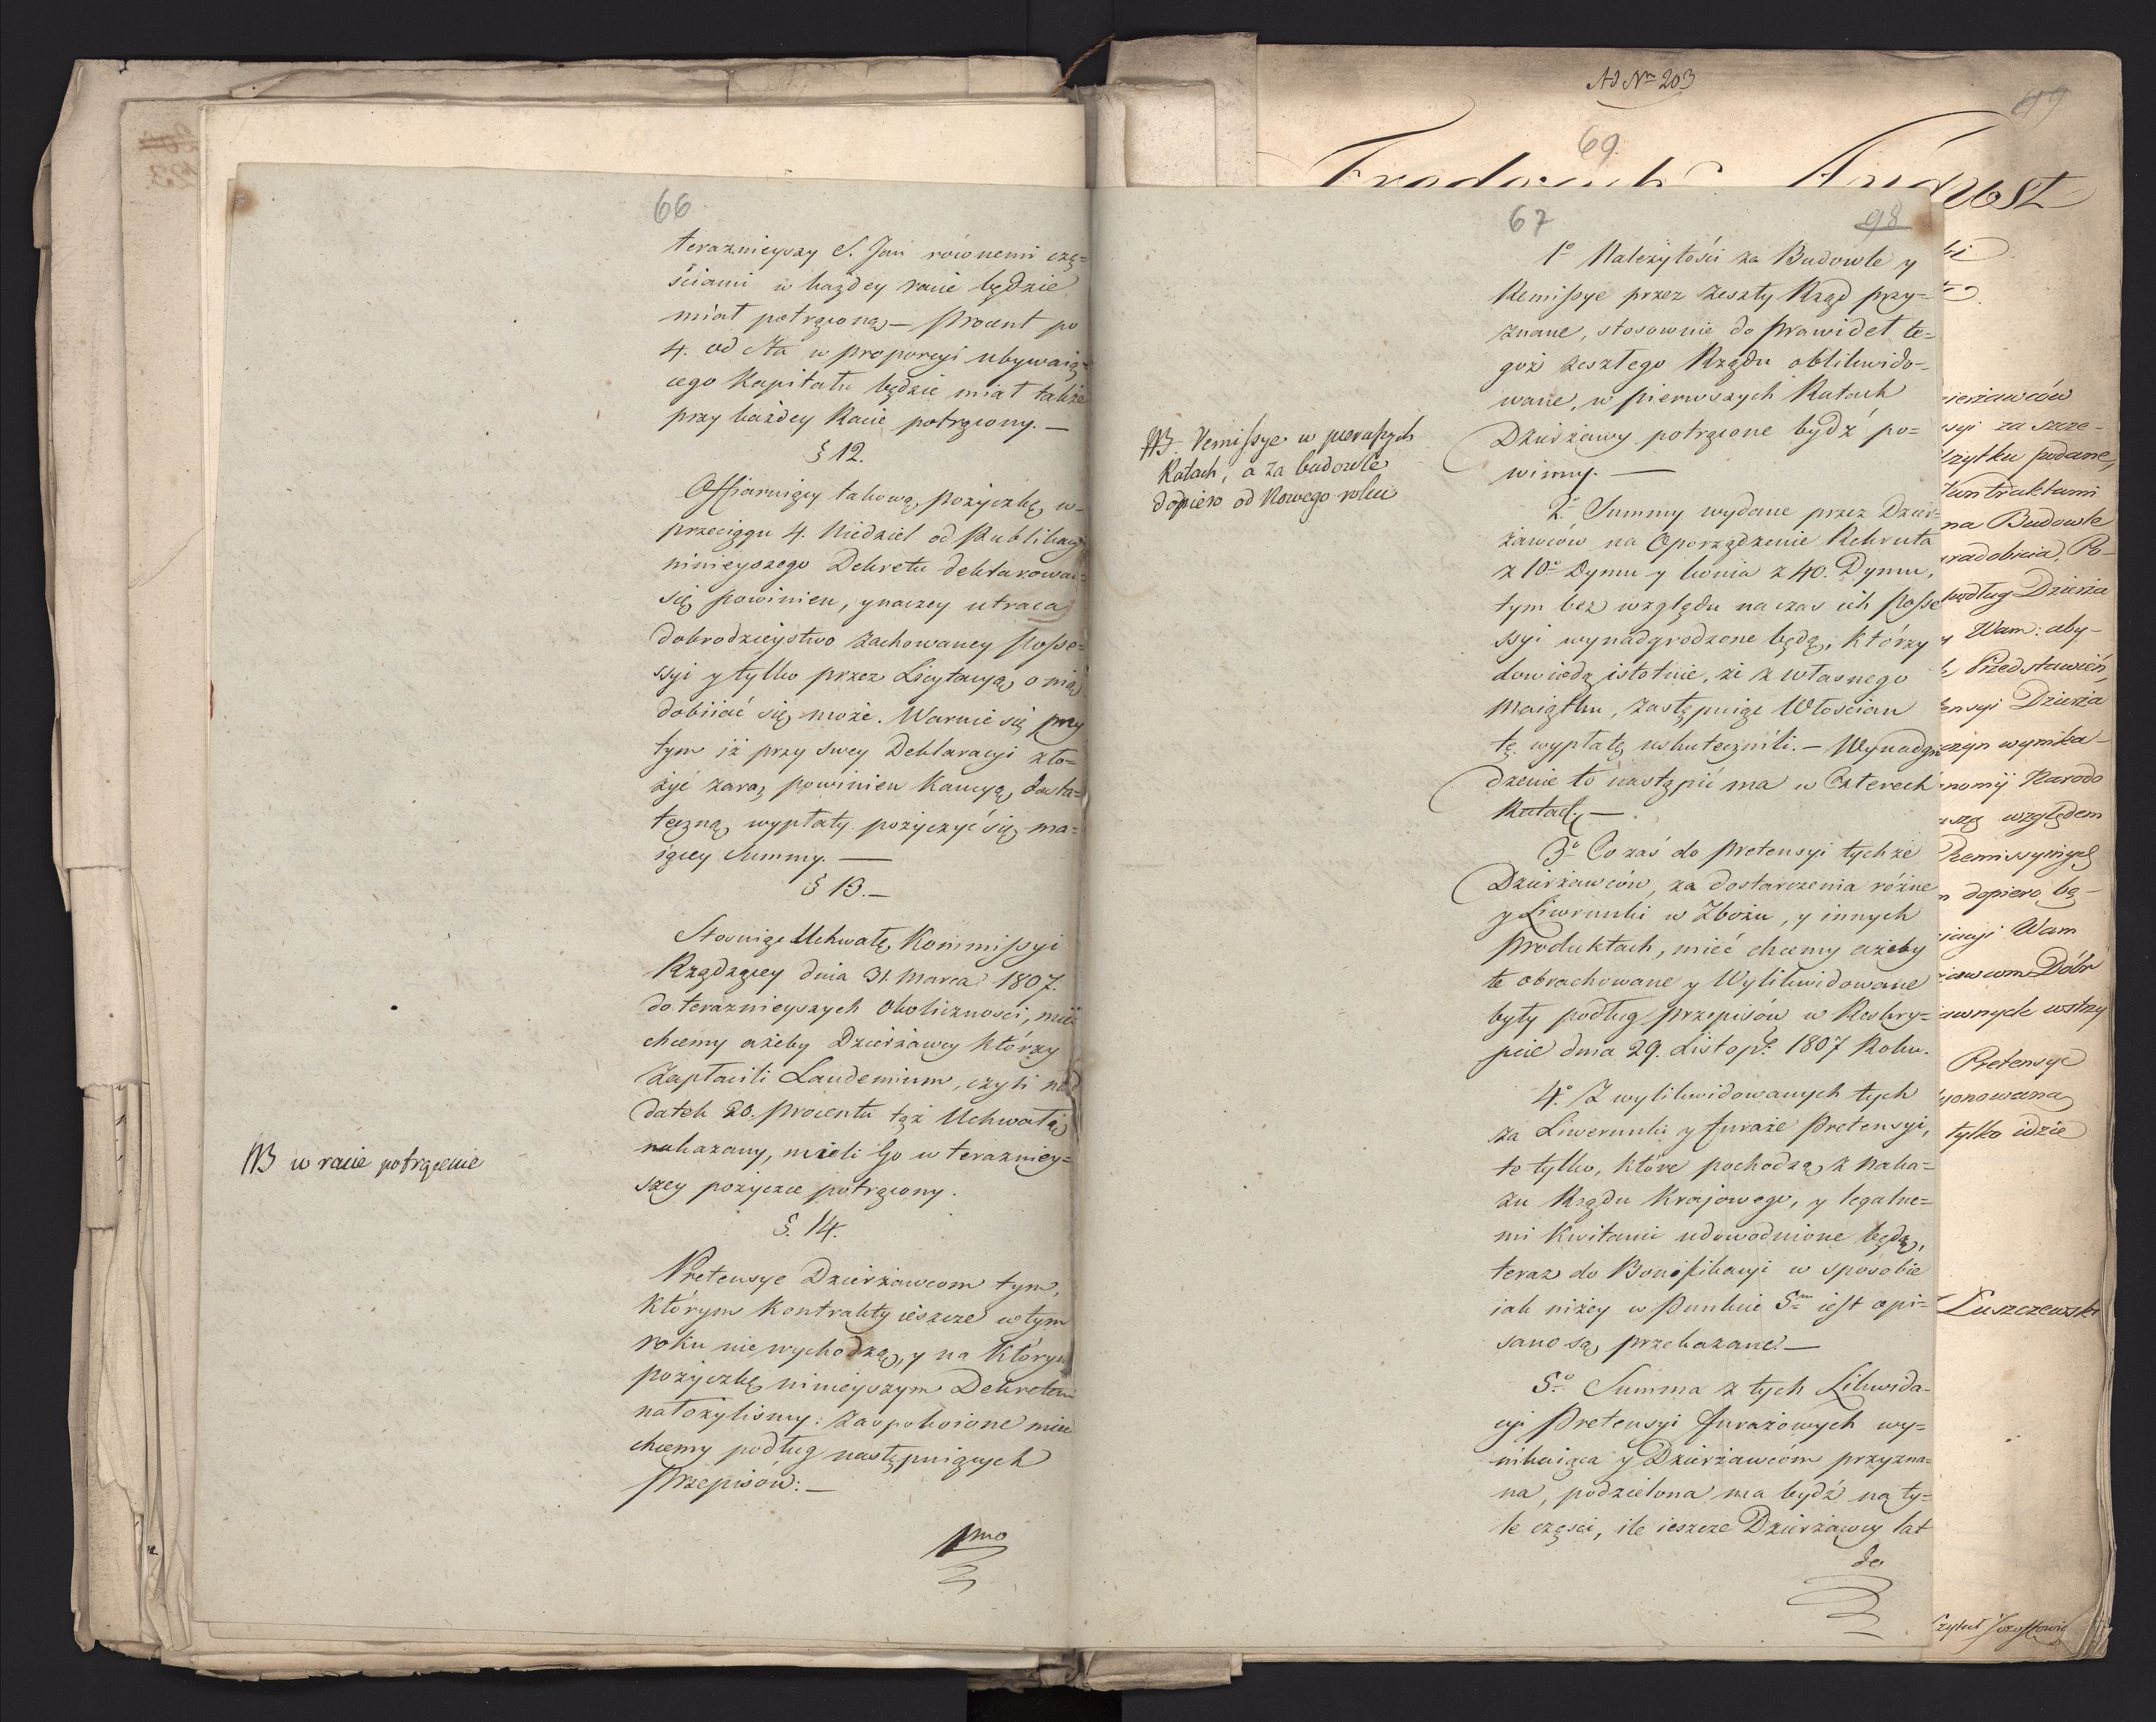 66
teraznieyszy S. Jan równemi czę=
ściami w każdey racie będzie
miał potrąconą — Procent po
4. od Sta w proporcyi ubywaią=
cego Kapitału będzie miał także
przy każdey Racie potrącony. —
§ 12.
Offiaruiący takową pożyczkę w
przeciągu 4. Niedziel od Publikacyi
ninieyszego Dekretu deklarować
się powinien, ynaczey utraca
dobrodzieystwo zachowaney Posse=
ssyi y tylko przez Licytacyą o nią
dobiiać się może. Waruie się przy
tym iż przy swey Deklaracyi zło=
żyć zaraz powinien Kaucyą dosta=
teczną wypłaty pożyczyć się ma=
iącey Summy. —
§ 13. —
Stosuiąc Uchwałę Kommissyi
Rządzącey dnia 31. Marca 1807.
do teraznieyszych okoliczności, mieć
chcemy ażeby Dzierżawcy którzy
zapłacili Laudemium, czyli na
datek 20. Procentu tąż Uchwałą
nakazany, mieli Go w teraźniey=
szey pożyczce potrącony.
NB w racie potrącenie
§. 14.
Pretensye Dzierżawcom tym,
którym Kontrakty ieszcze w tym
roku nie wychodzą, y na którym
pożyczkę ninieyszym Dekretem
nałożylismy: zaspokoione mieć
chcemy podług następuiących
Przepisów: —
1mo
Ad Nrm 203
69
69.
Frederick August
67
98
1o Należytości za Budowle y
Remissye przez zeszły Rząd przy=
znane, stosownie do prawideł te=
goż zeszłego Rządu oblikwido=
wane, w pierwszych Ratach
Dzierżawy potrącone bydź po=
winny. —
NB. Remissye w pierwszych
Ratach, a za budowle
dopiero od Nowego roku
2o Summy wydane przez Dzier=
żawców na Oporządzenie Rekruta
z 10o Dymu y konia z 40. Dymu,
tym bez względu na czas ich Posse
ssyi wynadgrodzone będą, którzy
dowiodą istotnie, że z własnego
Maiątku, zastępuiąc Włościan
tę wypłatę uskutecznili. — Wynadgro
dzenie to nastąpić ma w Czterech
Ratach —
3o Co zaś do Pretensyi tychże
Dzierżawców, za dostarczenia różne
y Liwerunki w Zbożu, y innych
Produktach, mieć chcemy ażeby
te obrachowane y Wylikwidowane
były podług przepisów w Reskry=
pcie dnia 29. Listop: 1807 Roku.
4o Z wylikwidowanych tych
za Liwerunki y furaże Pretensyi,
te tylko, które pochodzą z naka=
zu Rządu Krajowego, y legalne=
mi Kwitami udowodnione będą,
teraz do Bonifikacyi w sposobie
iak niżey w Punkcie 5m iest opi=
sano są przekazane. —
5o Summa z tych Likwida=
cyi Pretensyi furażowych wy=
nikaiąca y Dzierżawcom przyzna=
na, podzielona ma bydź na ty=
le części, ile ieszcze Dzierżawcy lat
do
ierżawców
syi za szcze-
żytku podane,
Kontraktami
na Budowle
podług Dzierża
y Wam: aby-
Przedstawień,
ensyi Dzierża
wynika-
nomij Narodo
względem
Remissyinych
dopiero, bę-
Wam
Dóbr
wstrzy
Pretensye
tylko idzie
Łuszczewski